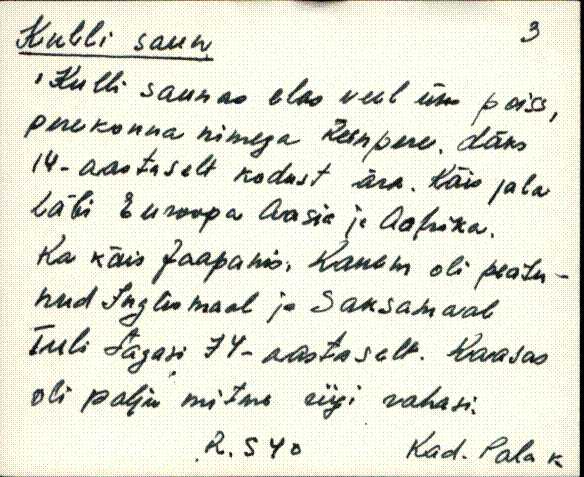 Kulli saun 3
Kulli saunas elas veel üks poiss,
perekonna nimega Reinpere. Läks
14-aastaselt kodust ära. Käis jala
läbi Euroopa Aasia ja Aafrika.
Ka käis Jaapanis. Kauem oli peatu-
nud Inglismaal ja Saksamaal
Tuli tagasi 74-aastaselt. Kaasas
oli palju mitme riigi rahasi.
R. S 40 Kad. Palak